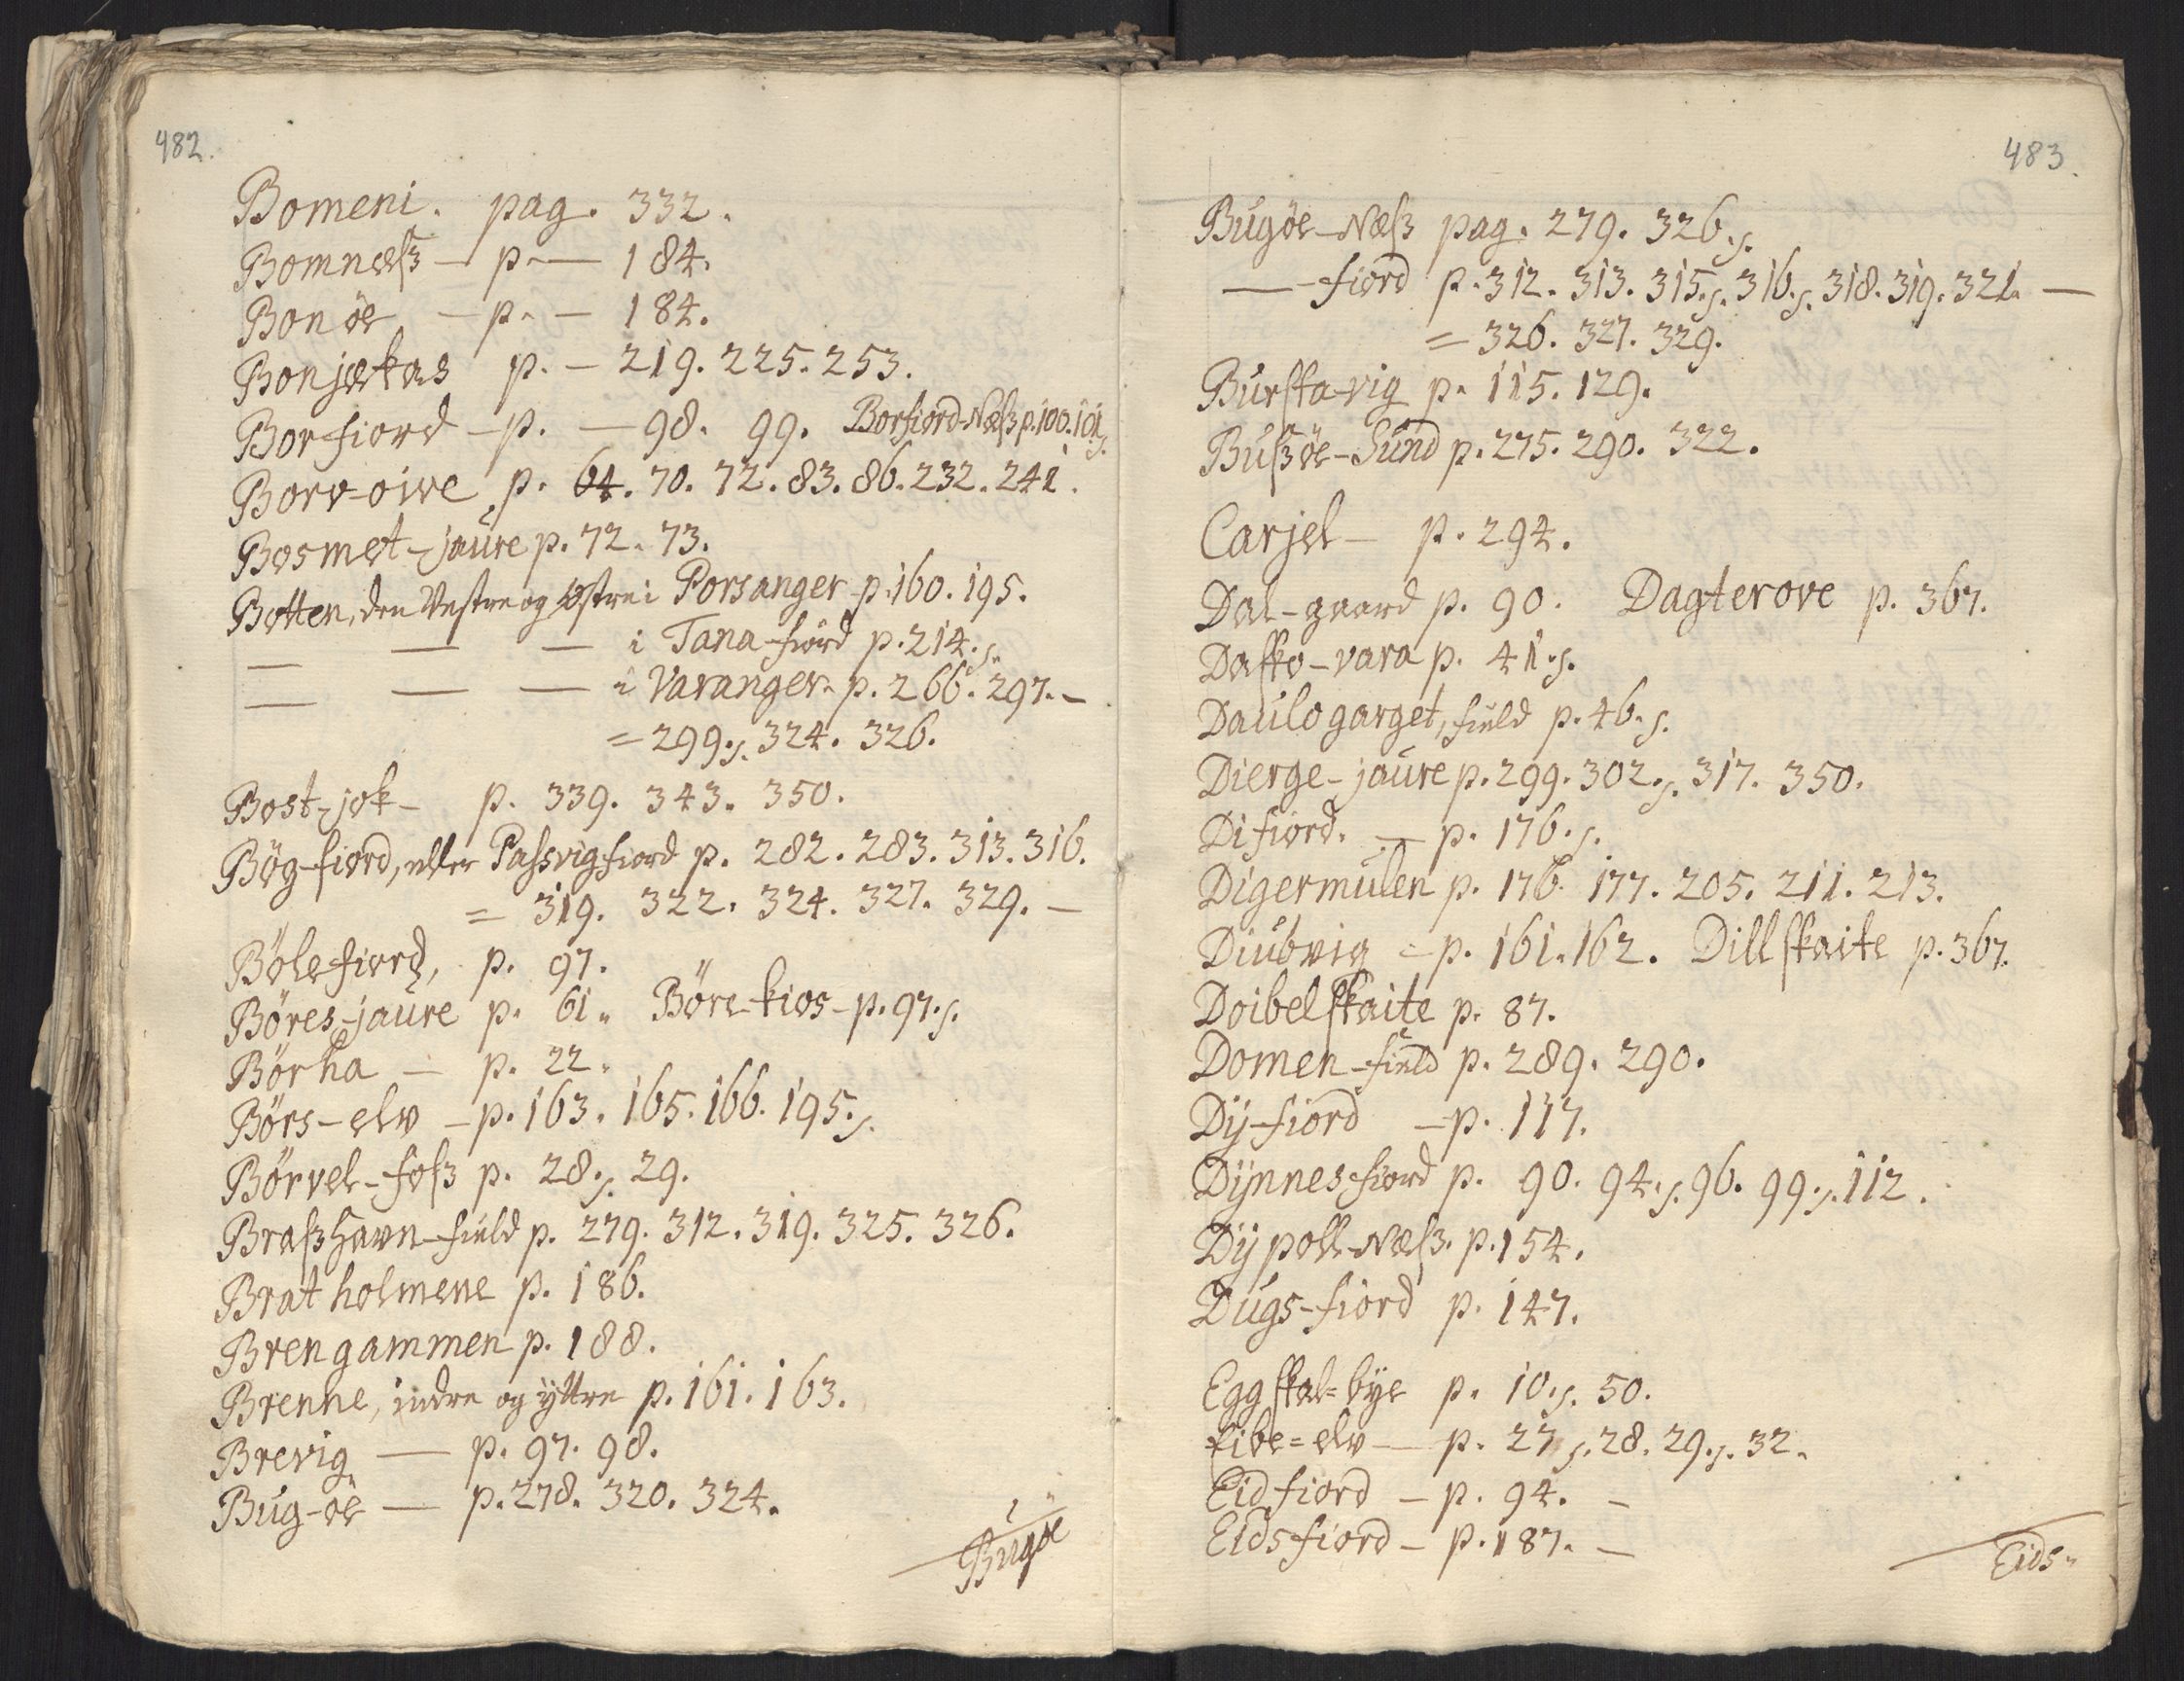 482.
Bomeni. pag. 332.
Bomnæss — p. — 184.
Bonöe — p. — 184.
Bonjækas p. — 219. 225. 253.
Borfiord — p. — 98. 99. Borfiord-Næss p. 100. 101.s.
Borv-oive p. 64. 70. 72. 83. 86. 232. 241.
Bosmet-jaure p. 72. 73.
Botten, den Vestre og Östre i Porsanger p. 160. 195.
— — — i Tana-fiord p. 214.s.
— — — i Varanger p. 266. 297. —
= 299.s. 324. 326.
Bost-jok — p. 339. 343. 350.
Bög-fiord, eller Passvigfiord p. 282. 283. 313. 316.
= 319. 322. 324. 327. 329. —
Bölefiord, p. 97.
Böres-jaure p. 61. Böre-kios — p. 97.s.
Börha — p. 22.
Börs-elv — p. 163. 165. 166. 195.s.
Börvel-foss p. 28.s. 29.
Brasshavn-field p. 279. 312. 319. 325. 326.
Bratholmene p. 186.
Brengammen p. 188.
Brenne, indre og ÿttre p. 161. 163.
Brevig — p. 97. 98.
Bug-öe — p. 278. 320. 324.
Bugöe
483.
Bugöe-Næss pag. 279. 326.s.
— fiord p. 312. 313. 315.s. 316.s. 318. 319. 321. —
= 326. 327. 329.
Burska-vig p. 115. 129.
Bussöe-Sund p. 275. 290. 322.
Carjel — p. 294.
Dal-gaard p. 90. Dagterove p. 367.
Dasko-vara p. 41.s.
Daulogarget, field p. 46.s.
Dierge-jaure p. 299. 302.s. 317. 350.
Difiord. — p. 176.s.
Digermulen p. 176. 177. 205. 211. 213.
Diubvig = p. 161. 162. Dillskaite p. 367.
Doibelskaite p. 87.
Domen-field p. 289. 290.
Dÿ-fiord — p. 117.
Dÿnnesfiord p. 90. 94.s. 96. 99.s. 112.
Dÿpoll-Næss. p. 154.
Dugs-fiord p. 147.
Eggskal=bÿe p. 10.s. 50.
Eibe=elv — p. 27.s. 28. 29.s. 32.
Eidfiord — p. 94. —
Eidsfiord — p. 187. —
Eids-